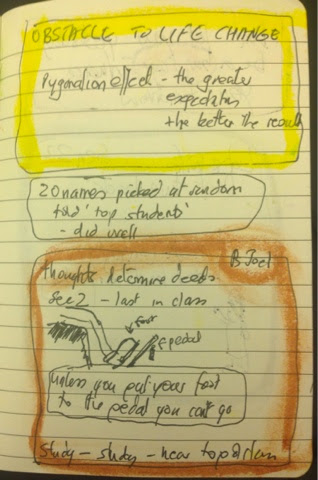 OBSTACLE TO LIFE CHANGE
Pygmalion effect - the greater
expectation
the better the result
20 names picked at random
told 'top students'
- did well
B Joel
thoughts determine deeds
sec 2 - last in class
foot
pedal
unless you put your foot
to the pedal you cant go
Study - study - near top of class